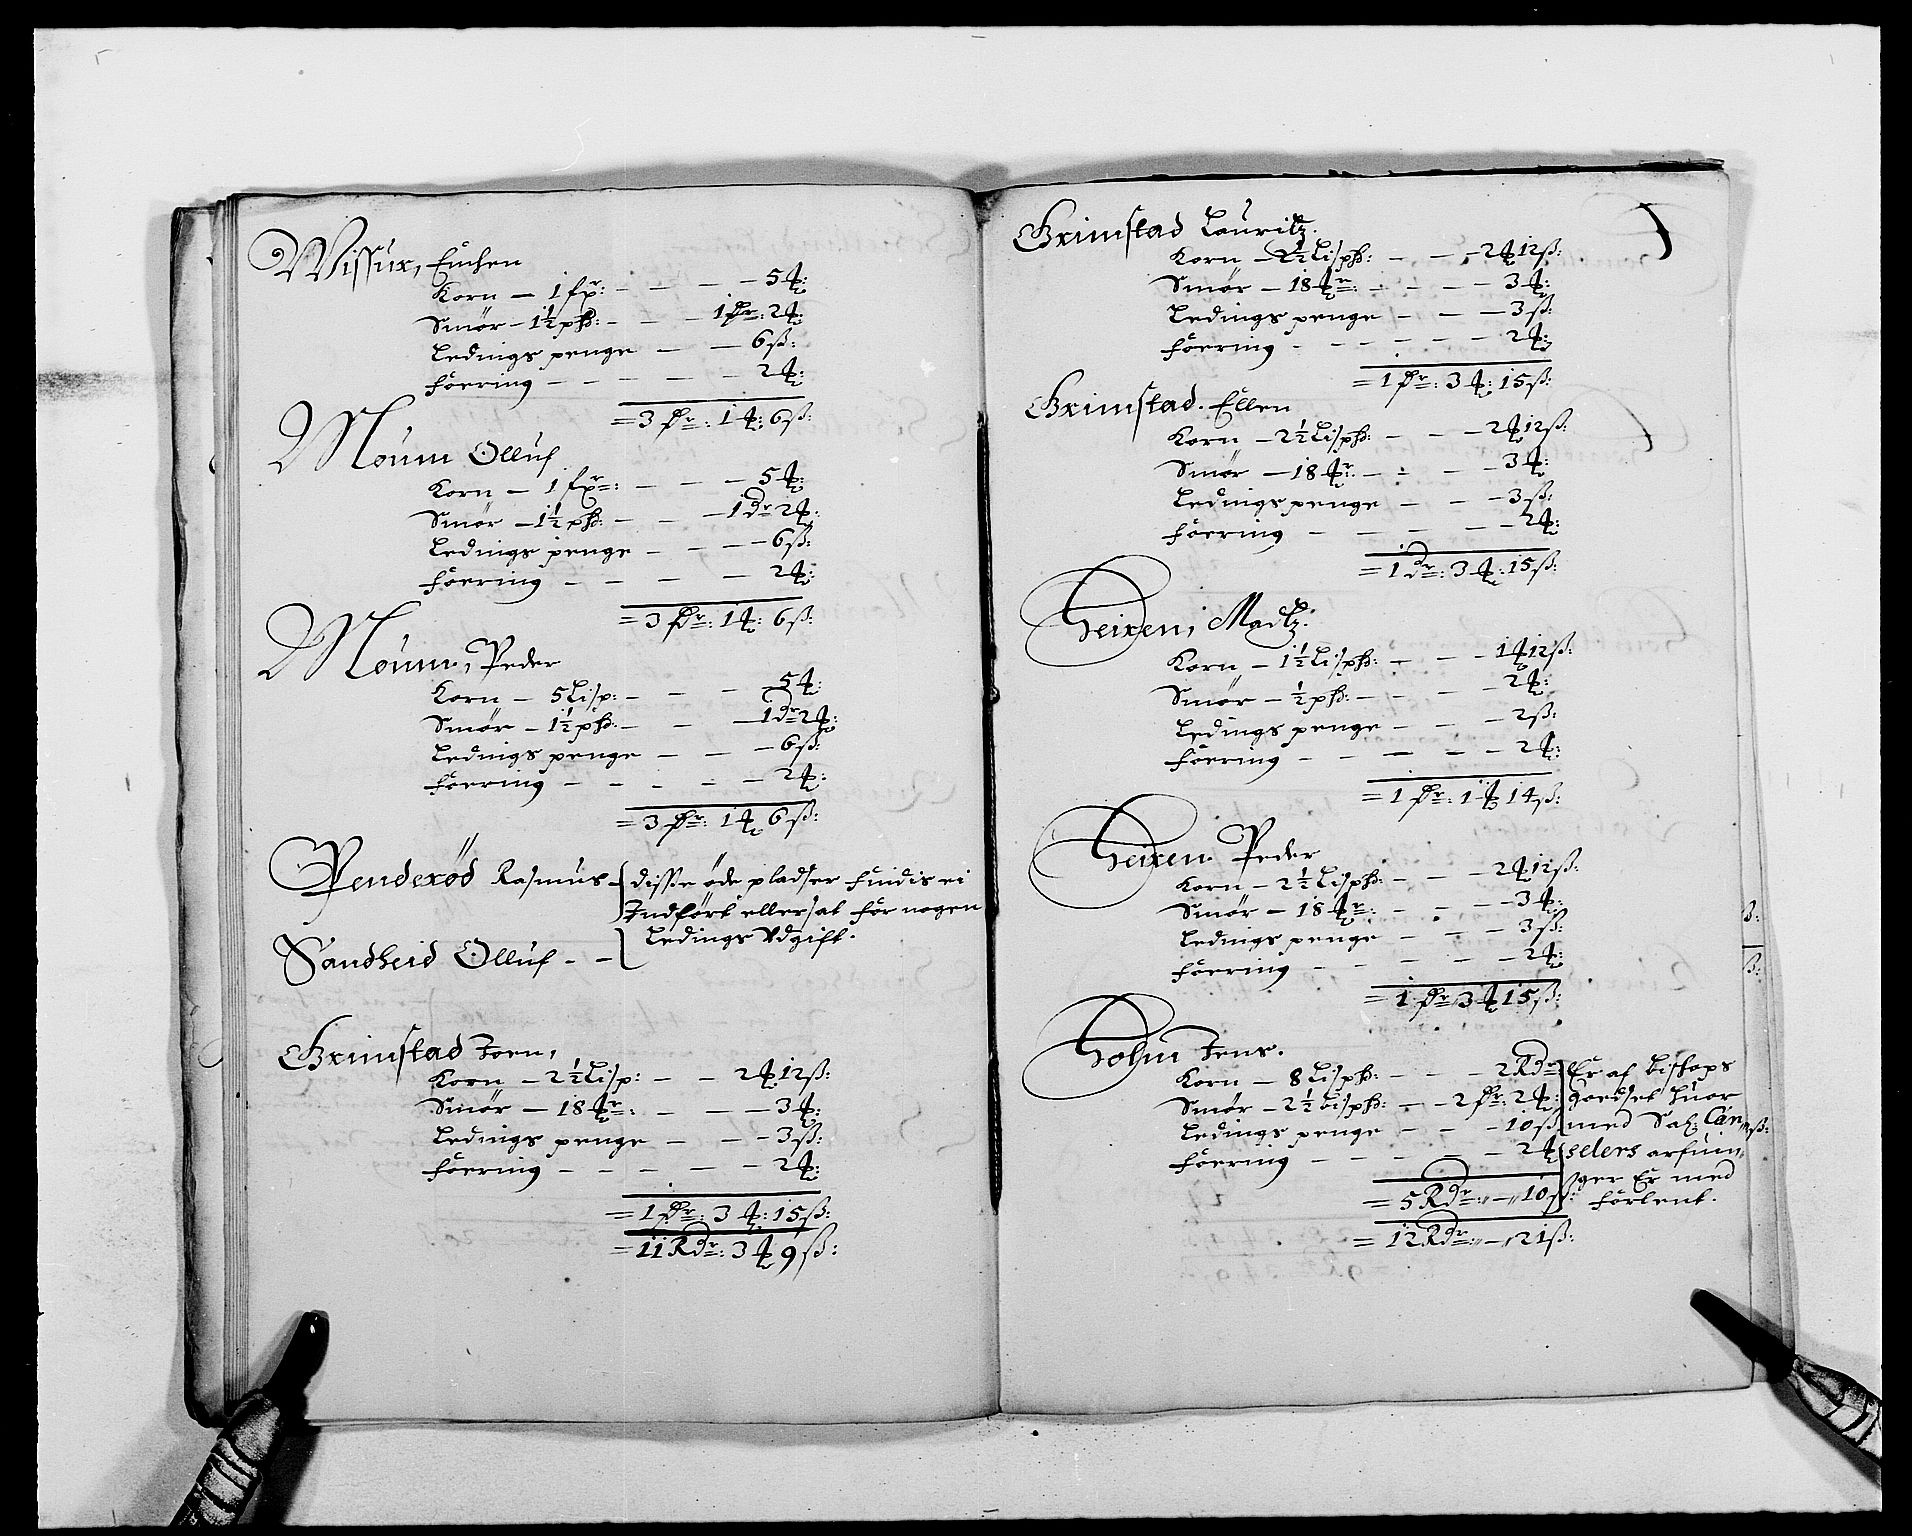 Wissür, Enchen
Korn – 1 fxr: – – – – 5 ₰:
Smør – 1½ pß: – – – 1 Dr: 2 ₰:
Ledings penge – – 6 ß:
Foering – – – – – 2 ₰:
= 3 Dr: 1 ₰: 6 ß:
Møum Olluf
Korn – 1 fxr: – – – 5 ₰:
Smør – 1½ pß: – – – 1 Dr 2 ₰:
Ledings penge – – – 6 ß:
Foering – – – – – 2 ₰:
= 3 Dr: 1 ₰: 6 ß:
Møum, Peder
Korn – 5 Lisp: – – – 5 ₰:
Smør – 1½ pß: – – – 1 Dr 2 ₰:
Ledings penge – – – 6 ß:
Foering – – – – – 2 ₰:
= 3 Dr: 1 ₰ 6 ß:
Penderød Rasmus – disse øde pladser findis ei
Indført eller sat for nogen
Ledings Vdgift.
Sandheid Olluf – –
Grimstad Joen,
Korn – 2½ Lisp: – – 2 ₰ 12 ß:
Smør – 18 ₰r: – – – 3 ₰:
Ledings penge – – – 3 ß:
Foering – – – – – 2 ₰:
= 1 Dr: 3 ₰: 15 ß:
= 11 RDr: 3 ₰ 9 ß:
Grimstad Lauritz.
Korn – 2½ Lispß: – – – 2 ₰ 12 ß:
Smør – 18 ₰r: – – – – 3 ₰:
Ledings penge – – – 3 ß:
Foering – – – – – – 2 ₰:
= 1 Dr: 3 ₰: 15 ß:
Grimstad. Ellen
Korn – 2½ Lispß: – – – 2 ₰ 12 ß:
Smør – 18 ₰r: – – – – 3 ₰:
Ledings penge – – – 3 ß:
Foering – – – – – 2 ₰:
= 1 Dr: 3 ₰: 15 ß:
Heiren, Madtz.
Korn – 1½ Lispß: – – – 1 ₰ 12 ß:
Smør – ½ pß: – – – – 2 ₰:
Ledings penge – – – 2 ß:
Foering – – – – – 2 ₰:
= 1 Dr: 1 ₰ 14 ß:
Heiren. Peder
Korn – 2½ Lispß: – – – 2 ₰ 12 ß:
Smør – 18 ₰r: – – – – 3 ₰:
Ledings penge – – – 3 ß:
Foering – – – – – 2 ₰:
= 1 Dr: 3 ₰ 15 ß:
Holm Jens.
Korn – 8 Lispß: – – – 2 RDr: Er af bishops
Smør – 2½ bispß: – – 2 Dr: 2 ₰: goedset huor
Ledings penge – – – 10 ß med Sal: Can,,
Foering – – – – – 2 ₰ selers arfuin,,
ger Er med
= 5 RDr: – „ 10 ß: forlent.
= 12 RDr: – „ 21 ß: